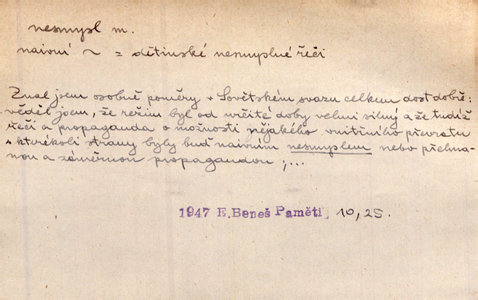 nesmysl m.
naivní ~ = dětinské nesmyslné řeči
Znal jsem osobně poměry v Sovětském svazu celkem dost dobře;
věděl jsem, že režim byl od určité doby velmi silný a že tudíž
řeči a propaganda o možnosti nějakého vnitřního převratu
s kterékoli strany byly buď naivním nesmyslem nebo přehna-
nou a záměrnou propagandou;...
1947 E. Beneš Paměti, 10, 25.